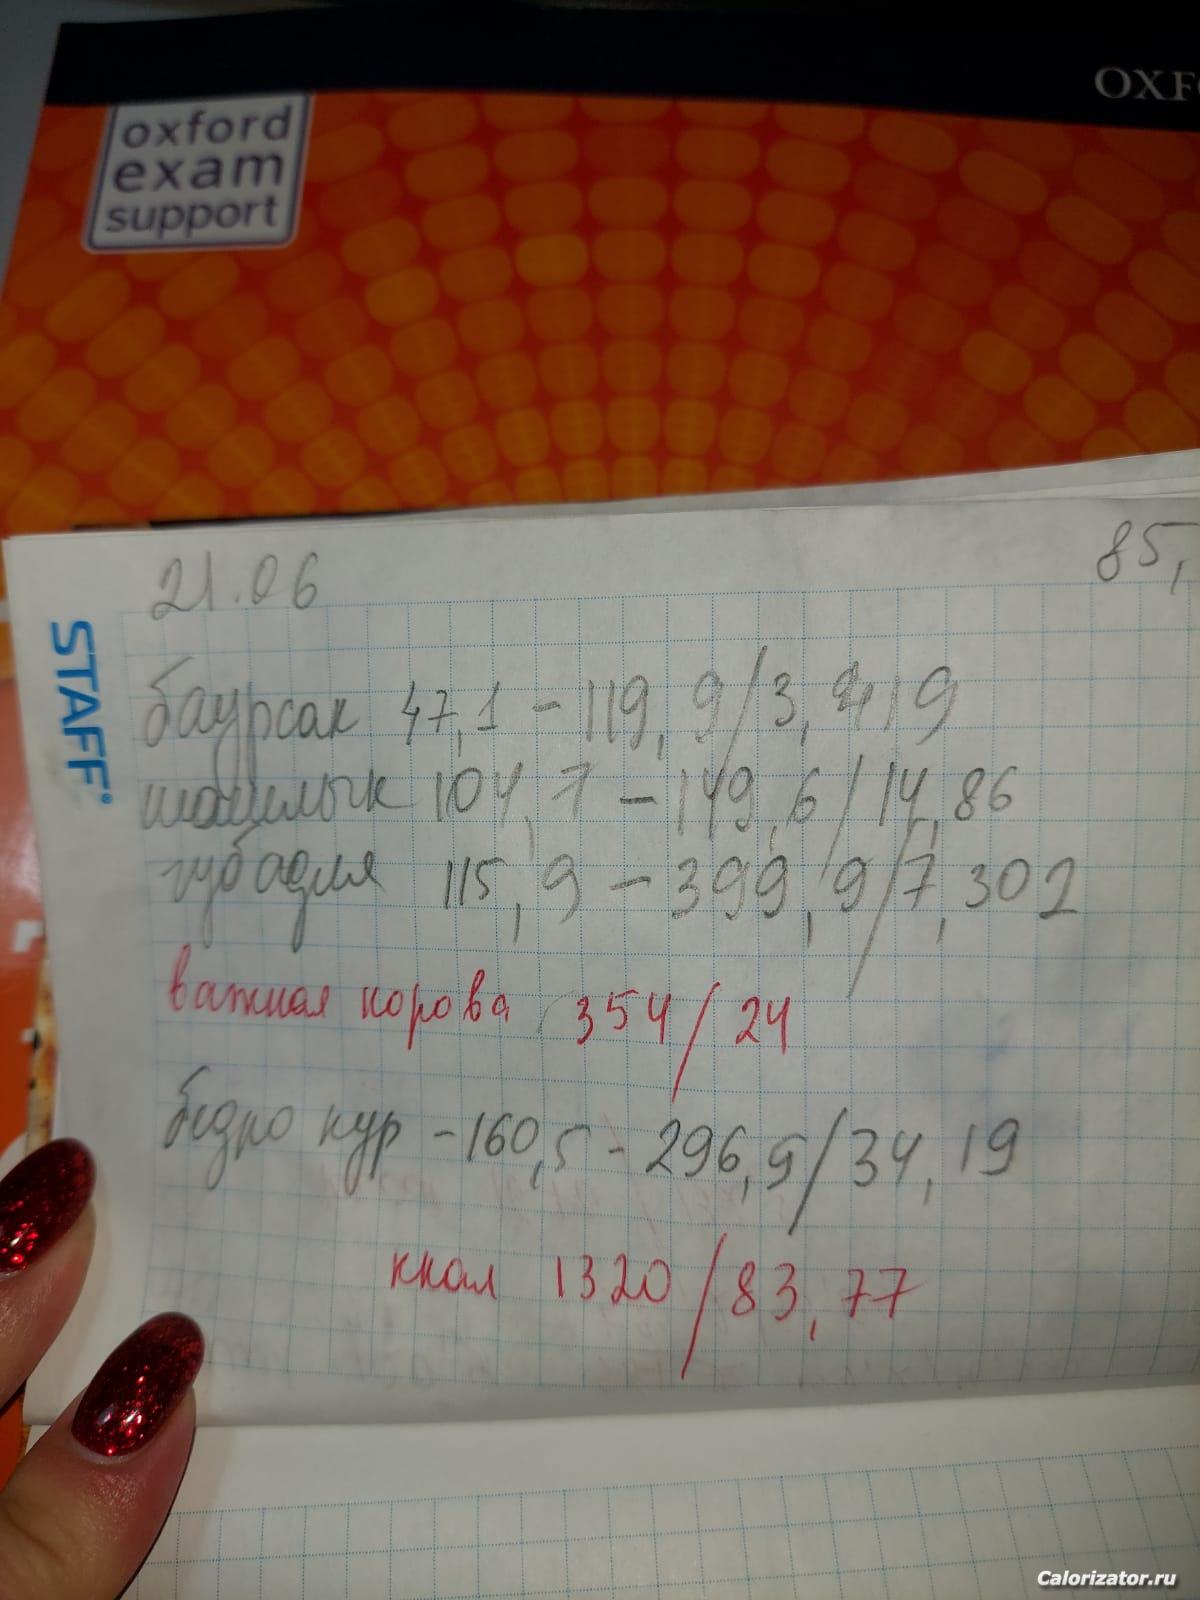 OXFO
oxford
exam
support
85,
21.06
STAFF
баурсак 47,1 - 119,9/3,419
шашлык 104,7 - 149,6/14,86
губадия 115,9 - 399,9/7,302
важная корова 354/24
бедро кур - 160,5 - 296,9/34,19
ккал 1320/83,77
Calorizator.ru